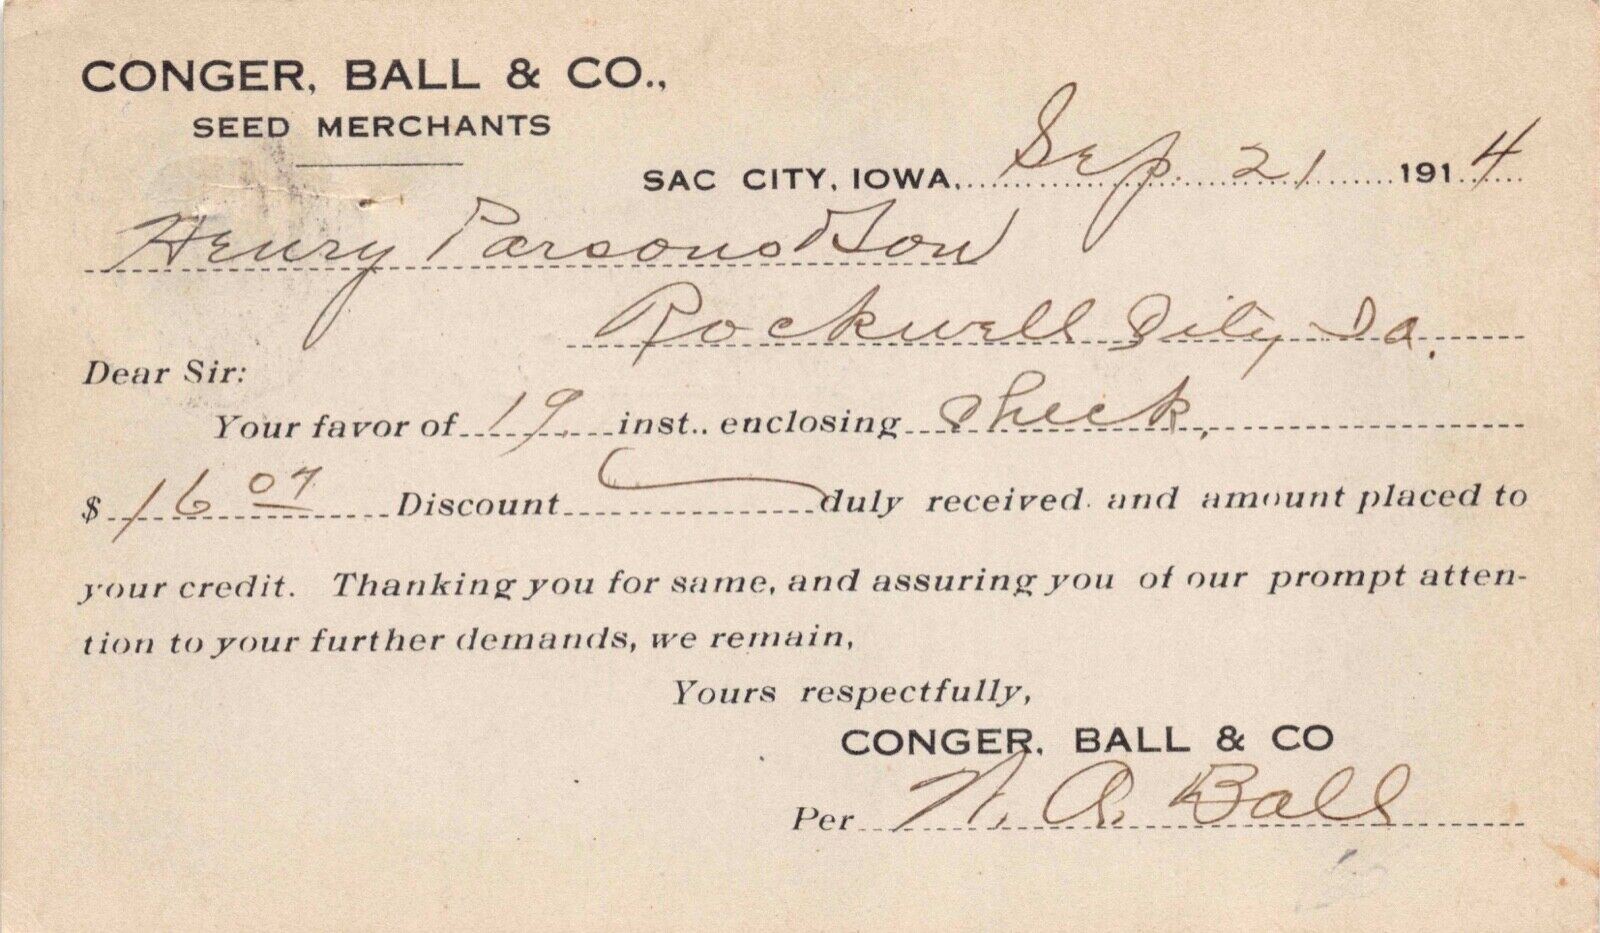 CONGER, BALL & CO.,
SEED MERCHANTS
SAC CITY, IOWA, Sep. 21 1914
Henry Parsons & Son
Rockwell City, Ia.
Dear Sir:
Your favor of 19 inst.. enclosing Check,
$ 16 07 Discount duly received and amount placed to
your credit. Thanking you for same, and assuring you of our prompt atten-
tion to your further demands, we remain,
Yours respectfully,
CONGER, BALL & CO
Per A. Ball